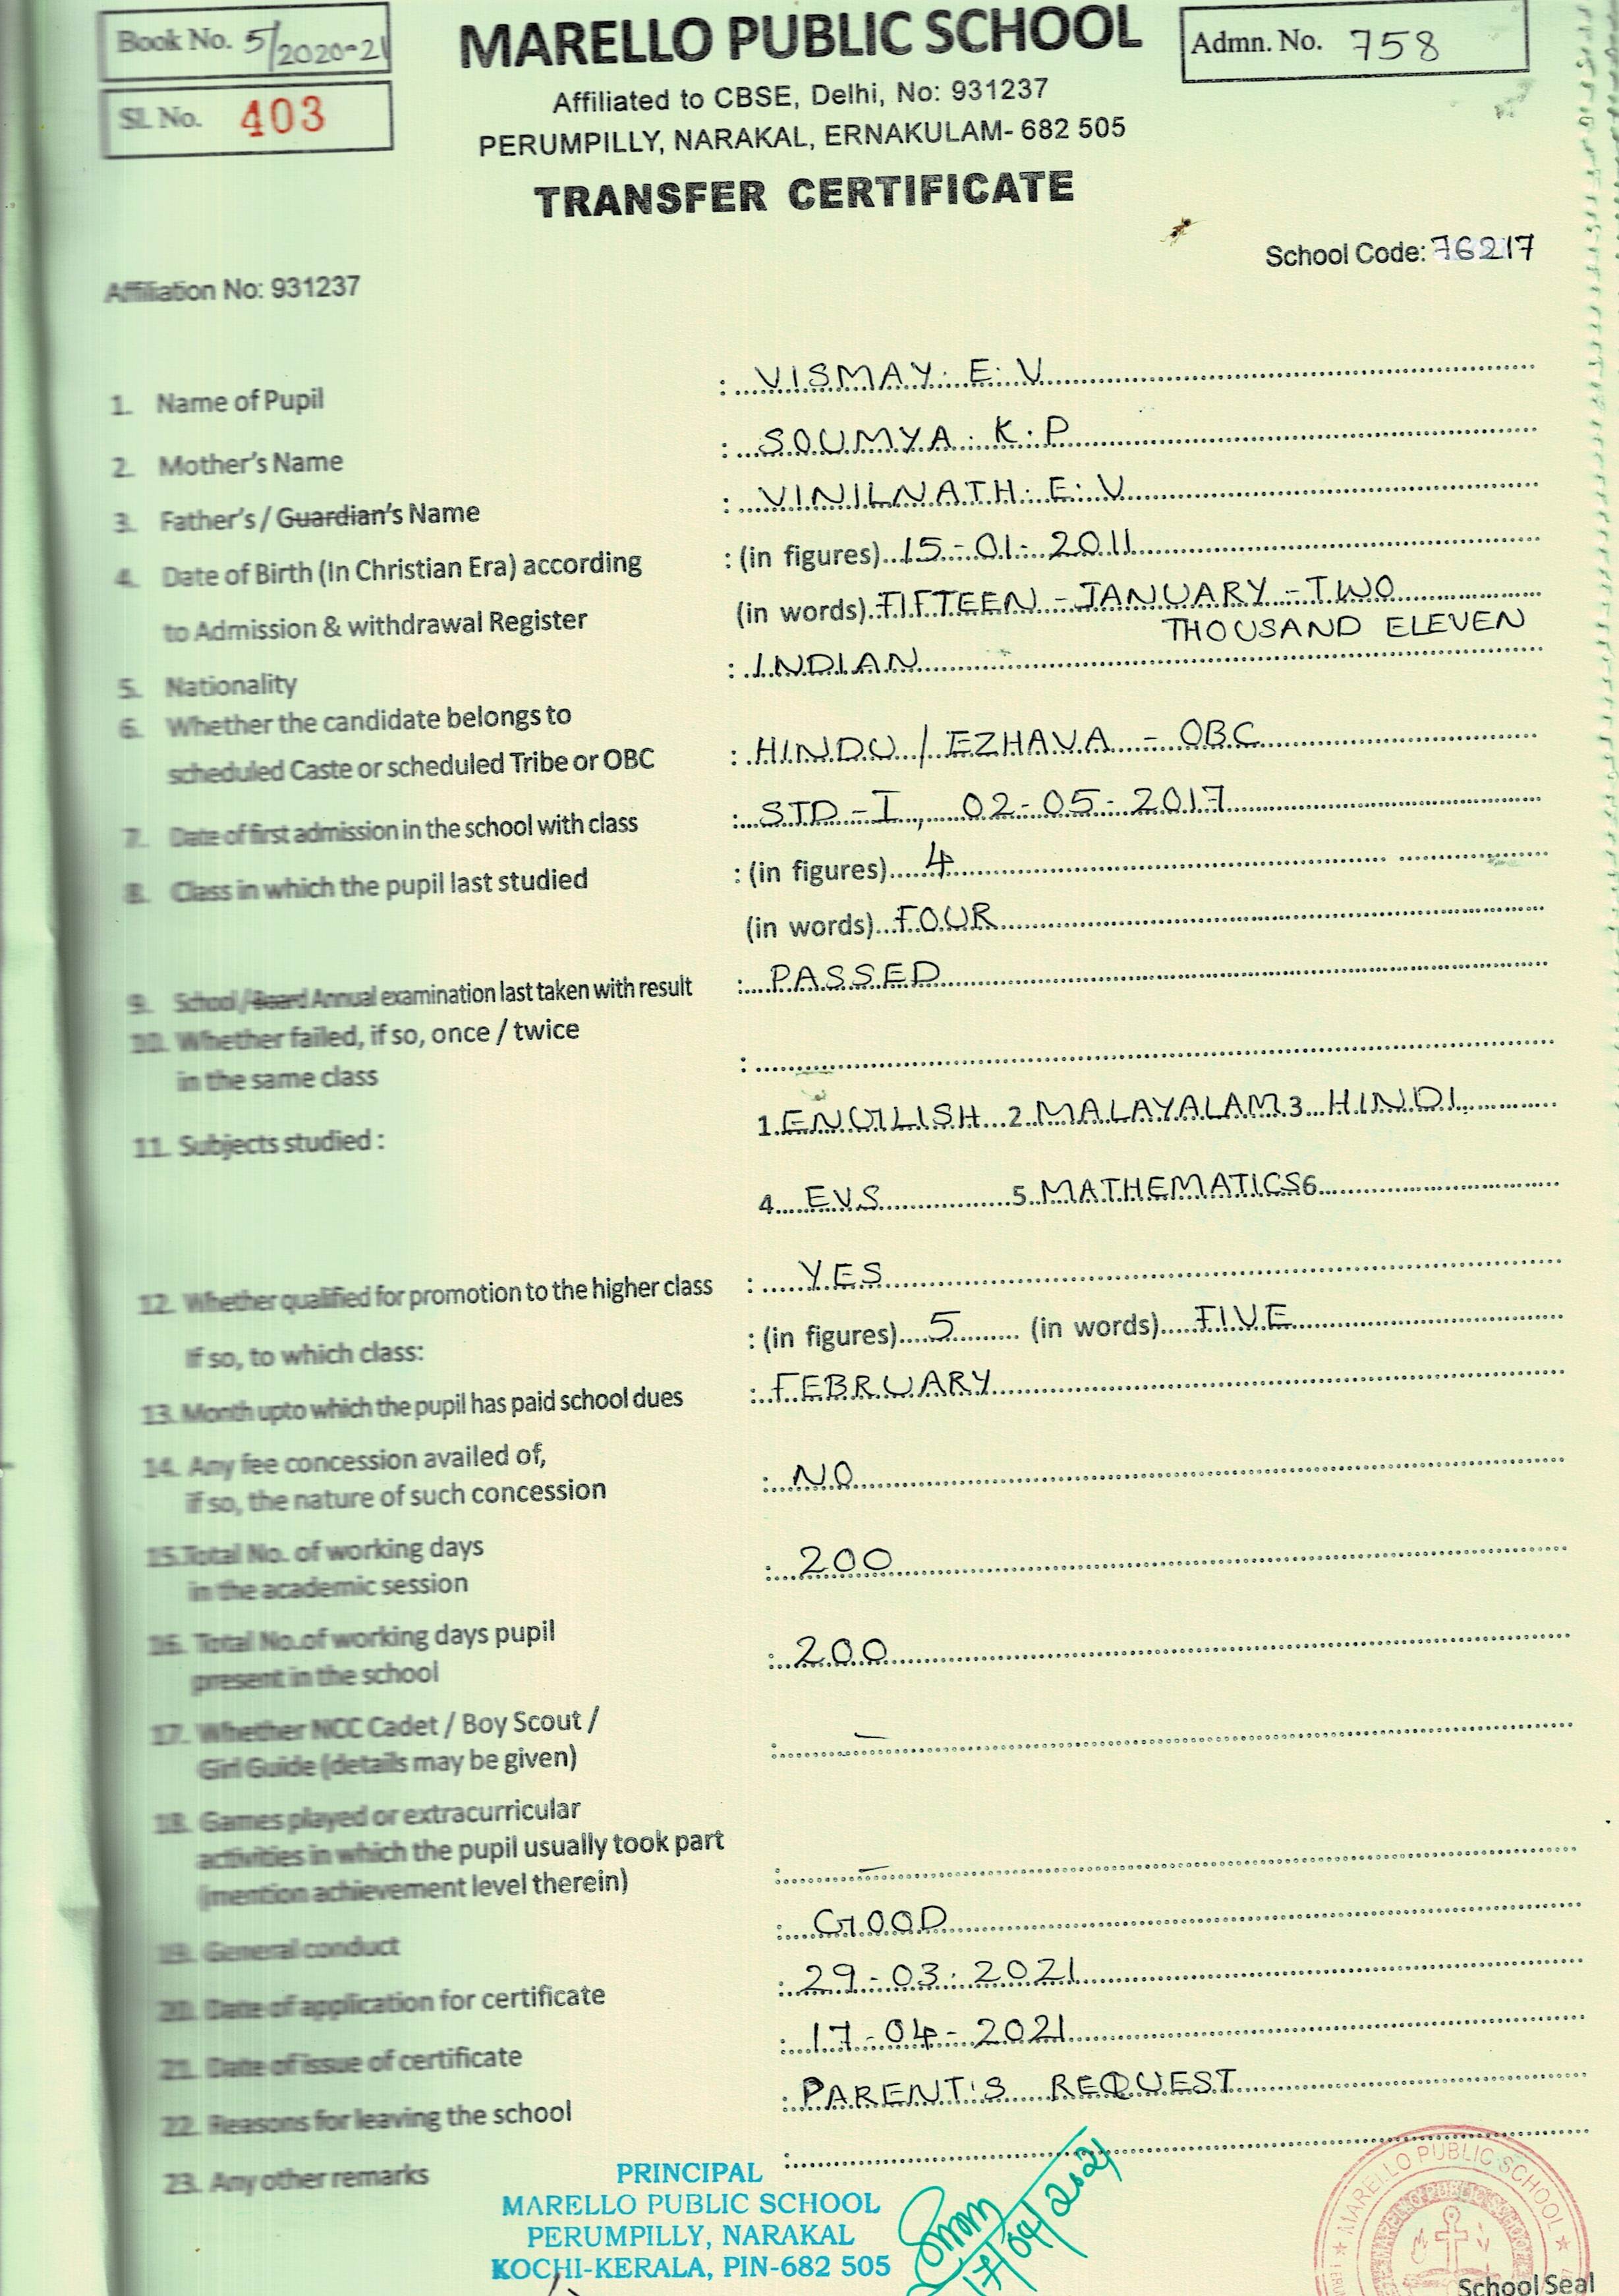 Book No. 5/2020-21
MARELLO PUBLIC SCHOOL
Admn. No. 758
Sl. No. 403
Affiliated to CBSE, Delhi, No: 931237
PERUMPILLY, NARAKAL, ERNAKULAM- 682 505
TRANSFER CERTIFICATE
School Code: 76217
Affiliation No: 931237
1. Name of Pupil : VISMAY. E. V
2. Mother's Name : SOUMYA. K. P
3. Father's / Guardian's Name : VINILNATH. E. V
4. Date of Birth (In Christian Era) according : (in figures) 15-01-2011
to Admission & withdrawal Register (in words) FIFTEEN - JANUARY - TWO
THOUSAND ELEVEN
5. Nationality : INDIAN
6. Whether the candidate belongs to
scheduled Caste or scheduled Tribe or OBC : HINDU / EZHAVA - OBC
7. Date of first admission in the school with class : STD - I, 02-05-2017
8. Class in which the pupil last studied : (in figures) 4
(in words) FOUR
9. School / Board Annual examination last taken with result : PASSED
10. Whether failed, if so, once / twice
in the same class :
11. Subjects studied : 1. ENGLISH 2. MALAYALAM 3. HINDI
4. EVS 5. MATHEMATICS 6.
12. Whether qualified for promotion to the higher class : YES
If so, to which class: : (in figures) 5 (in words) FIVE
13. Month upto which the pupil has paid school dues : FEBRUARY
14. Any fee concession availed of,
if so, the nature of such concession : NO
15. Total No. of working days
in the academic session : 200
16. Total No.of working days pupil
present in the school : 200
17. Whether NCC Cadet / Boy Scout /
Girl Guide (details may be given) : —
18. Games played or extracurricular
activities in which the pupil usually took part
(mention achievement level therein) : —
19. General conduct : GOOD
20. Date of application for certificate : 29-03-2021
21. Date of issue of certificate : 17-04-2021
22. Reasons for leaving the school : PARENT'S REQUEST
23. Any other remarks :
PRINCIPAL
MARELLO PUBLIC SCHOOL
PERUMPILLY, NARAKAL
KOCHI-KERALA, PIN-682 505
17/04/2021
MARELLO PUBLIC SCHOOL
MARELLO PUBLIC SCHOOL
School Seal